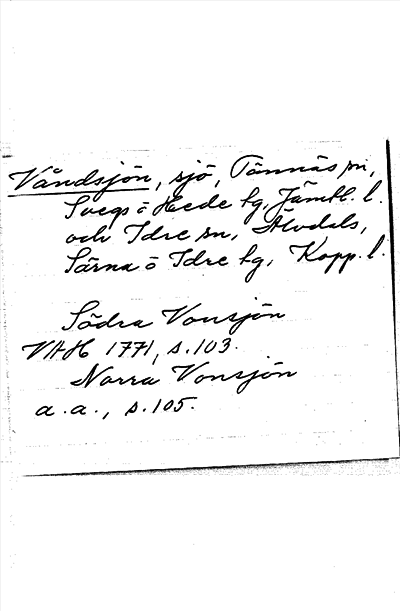 Våndsjön, sjö, Tännäs sn,
Svegs o Hede tg, Jämtl. l.
och Idre sn, Älvdals,
Särna o Idre tg, Kopp. l.
Södra Vonsjön
VAH 1771, s. 103.
Norra Vonsjön
a. a., s. 105.